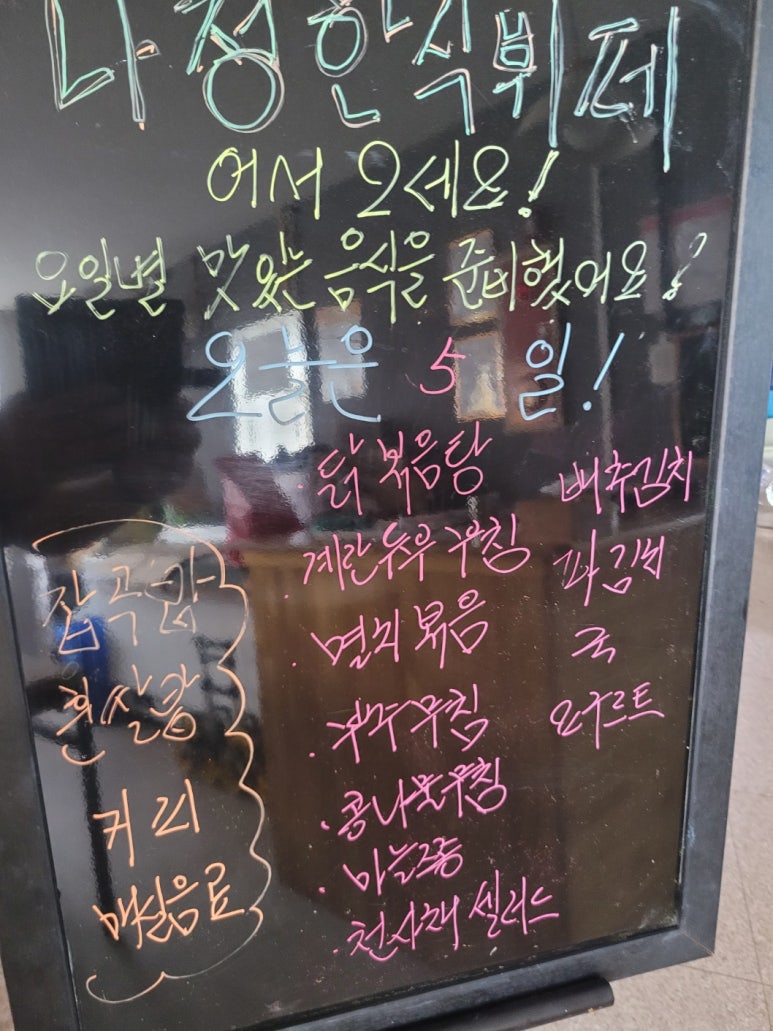 다정한식뷔페
어서 오세요!
요일별 맛있는 음식을 준비했어요?
오늘은 5 일!
잡곡밥
흰쌀밥
커피
매실음료
· 닭볶음탕
· 계란두부 무침
· 멸치볶음
· 부추무침
· 콩나물무침
· 마늘쫑
· 천사채 셀러드
배추김치
파김치
국
요구르트